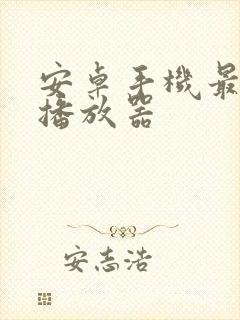 安卓手機最
播放器
安志浩